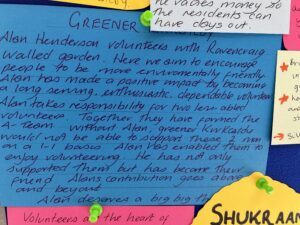 he raises money so
the residents can
have days out.
GREENER
Alan Henderson volunteers with Ravenscraig
Walled garden. Here we aim to encourage
people to be more environmentally friendly.
Alan has made a positive impact by becoming
a long serving, enthusiastic, dependable volunteer.
Alan takes responsibility for two less able
volunteers. Together they have formed the
A-Team. Without Alan, greener Kirkcaldy
would not be able to support these 2 men
on a 1-1 basis. Alan has enabled them to
enjoy volunteering. He has not only
supported them but has become their
friend. Alans contribution goes above
and beyond
Alan deserves a big big th
Volunteers a the heart of
SHUKRAA